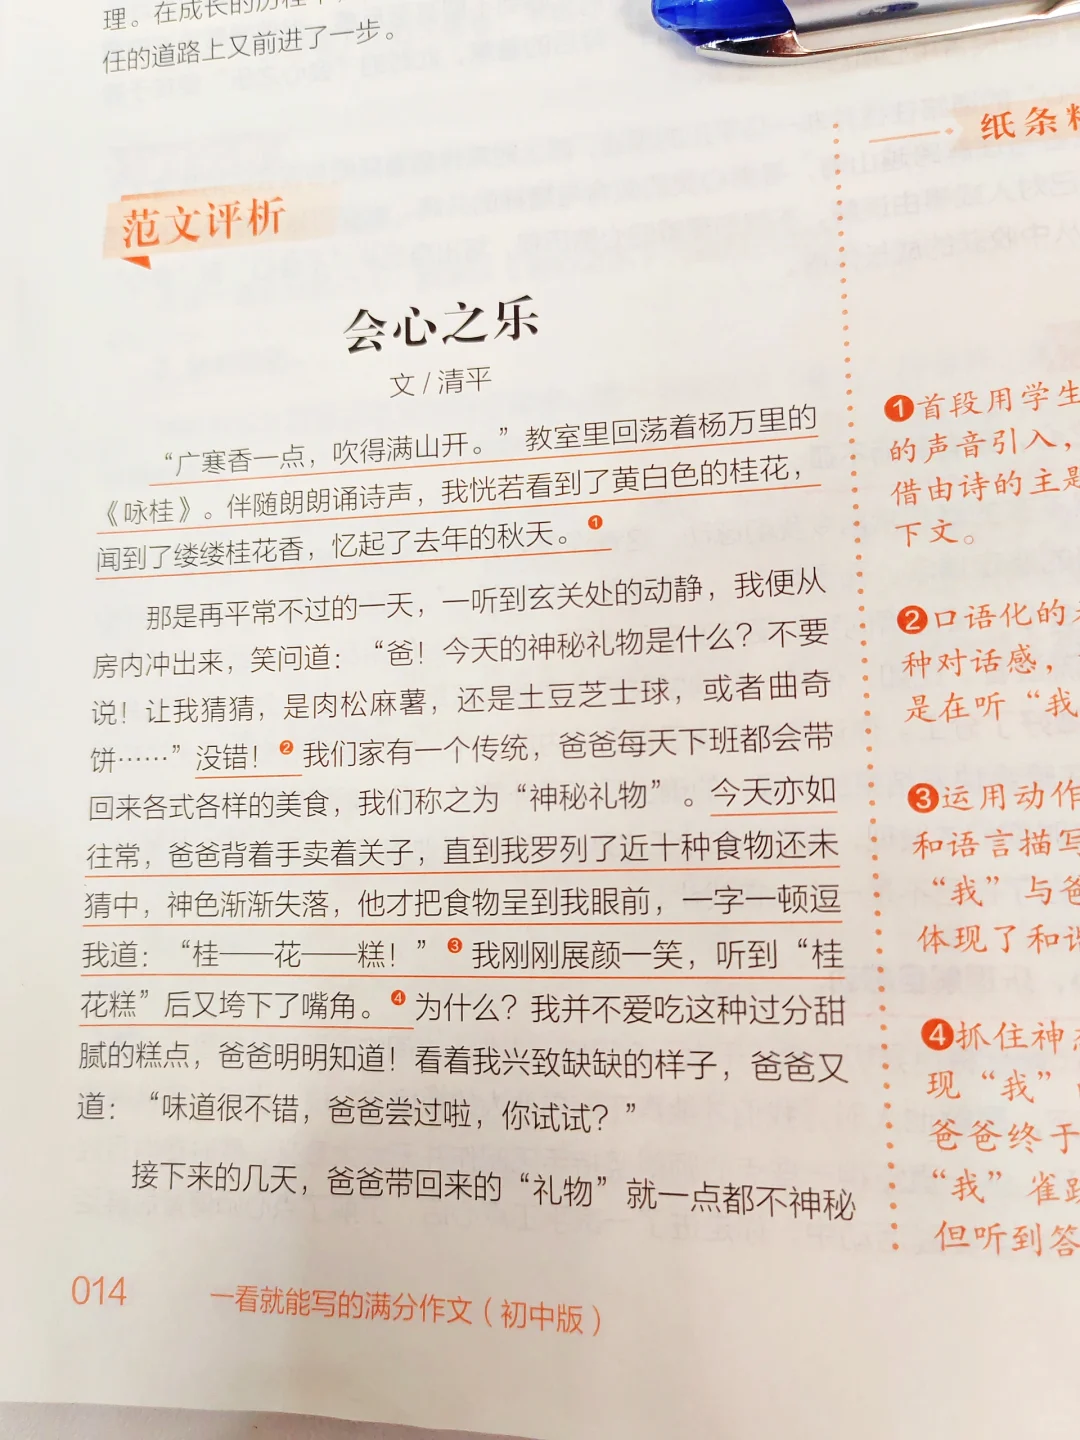 理。在成长的历程
任的道路上又前进了一步。
范文评析
会心之乐
文/清平
“广寒香一点，吹得满山开。”教室里回荡着杨万里的
《咏桂》。伴随朗朗诵诗声，我恍若看到了黄白色的桂花，
闻到了缕缕桂花香，忆起了去年的秋天。❶
那是再平常不过的一天，一听到玄关处的动静，我便从
房内冲出来，笑问道：“爸！今天的神秘礼物是什么？不要
说！让我猜猜，是肉松麻薯，还是土豆芝士球，或者曲奇
饼……”没错！❷我们家有一个传统，爸爸每天下班都会带
回来各式各样的美食，我们称之为“神秘礼物”。今天亦如
往常，爸爸背着手卖着关子，直到我罗列了近十种食物还未
猜中，神色渐渐失落，他才把食物呈到我眼前，一字一顿逗
我道：“桂——花——糕！”❸我刚刚展颜一笑，听到“桂
花糕”后又垮下了嘴角。❹为什么？我并不爱吃这种过分甜
腻的糕点，爸爸明明知道！看着我兴致缺缺的样子，爸爸又
道：“味道很不错，爸爸尝过啦，你试试？”
接下来的几天，爸爸带回来的“礼物”就一点都不神秘
纸条
❶首段用学生
的声音引入，
借由诗的主
下文。
❷口语化的
种对话感，
是在听“我
❸运用动作
和语言描写
“我”与爸
体现了和
❹抓住神
现“我”
爸爸终于
“我”雀
但听到答
014
一看就能写的满分作文（初中版）